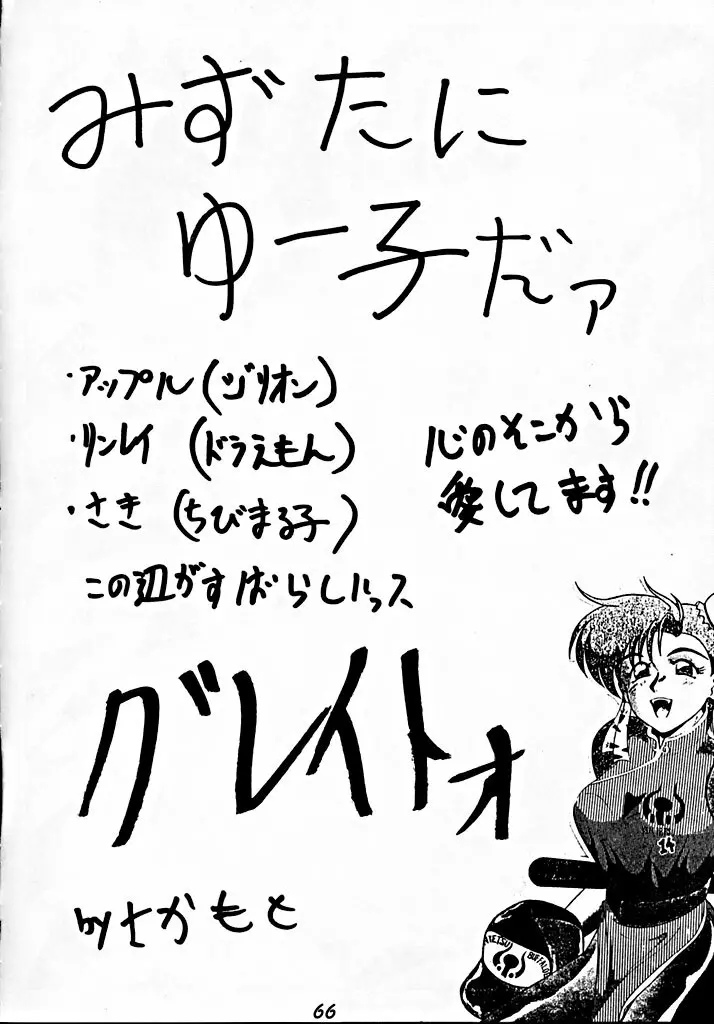 みずたに
ゆー子だァ
・アップル(ゾリオン)
・リンレイ(ドラえもん)
・さき(ちびまる子)
この辺がすばらしいっス
心のそこから
愛してます!!
グレイトォ
by さかもと
14
66